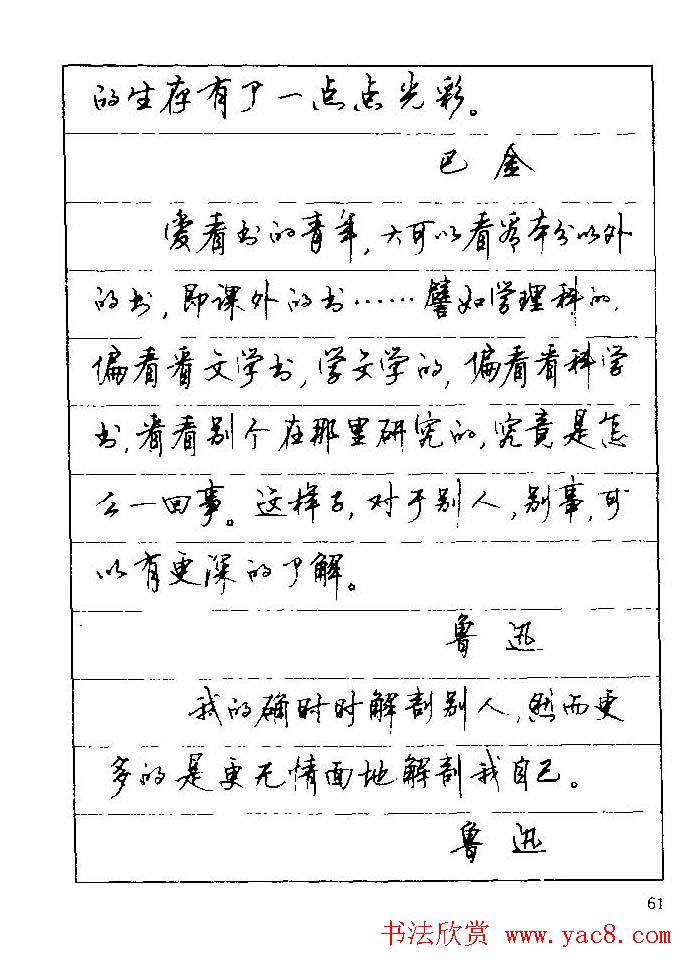 的生存有了一点点光彩。
巴金
爱看书的青年，大可以看看本分以外
的书，即课外的书……譬如学理科的，
偏看看文学书，学文学的，偏看看科学
书，看看别个在那里研究的，究竟是怎
么一回事。这样子，对于别人，别事，可
以有更深的了解。
鲁迅
我的确时时解剖别人，然而更
多的是更无情面地解剖我自己。
鲁迅
61
书法欣赏 www.yac8.com